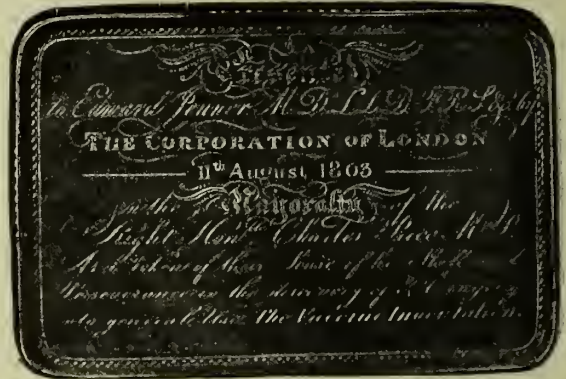 Presented
to Edward Jenner M.D. L.L.D. F.R.S. &c by
THE CORPORATION OF LONDON
11th August 1803
in the Mayoralty of the
Right Honble Charles Price
As a Token of their Sense of his Skill &
Perseverance in the discovery of &
into general Use The Vaccine Innoculation.